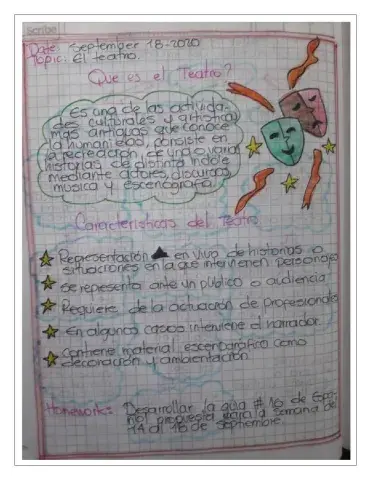 scribe
Date: September 18-2020
Topic: El teatro.
Que es el Teatro?
Es una de las activida-
des culturales y artisticas
mas antiguas que conoce
la humanidad, consiste en
la recreación, de una o varias
historias de distinta indole
mediante actores, discursos,
musica y escenografia.
Caracteristicas del Teatro
Representación en vivo de historias o
situaciones en la que intervienen personajes
se representa ante un público o audiencia
Requiere de la actuación de profesionales
en algunos casos interviene el narrador
contiene material escenografico como
decoración y ambientación.
Homework: Desarrollar la guia #16 de Espa-
ñol propuesta para la semana de
14 al 18 de septiembre